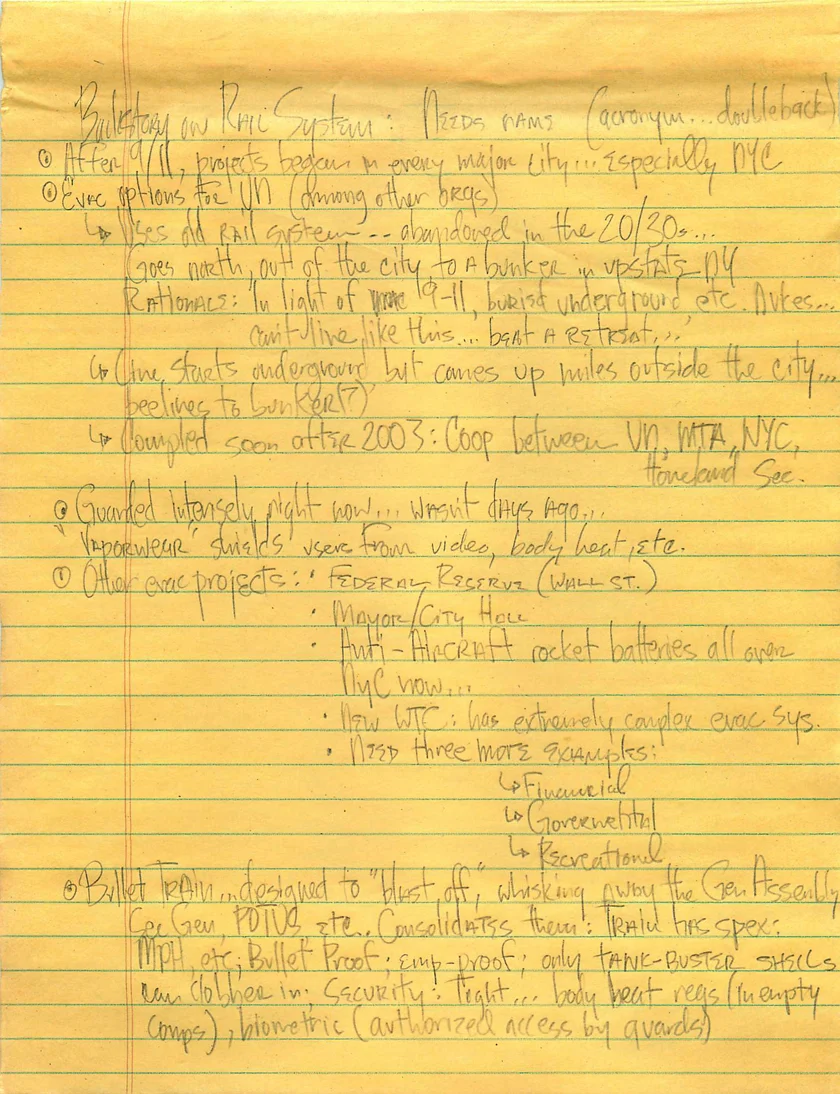 Backstory on Rail System: Needs name (acronym... doubleback)
After 9/11, projects began in every major city... Especially NYC
Evac options for UN (among other orgs)
↳ Uses old rail system -- abandoned in the 20/30s...
Goes north, out of the city to a bunker in upstate NY
Rationale: "In light of 9-11, buried underground, etc. Nukes...
can't live like this... beat a retreat..."
↳ Line starts underground but comes up miles outside the city...
beelines to bunker(?)
↳ Compled soon after 2003: Coop between UN, MTA, NYC,
Homeland Sec.
Guarded intensely right now... wasn't days ago...
"Vaporwear" shields users from video, body heat, etc.
Other evac projects: • Federal Reserve (Wall St.)
• Mayor/City Hall
• Anti-Aircraft rocket batteries all over
NYC now...
• New WTC: has extremely complex evac sys.
• Need three more examples:
↳ Financial
↳ Govermetntal
↳ Recreational
Bullet Train... designed to "blast off," whisking away the Gen Assembly
Sec Gen, POTUS etc. Consolidates them: Train has spex:
MPH, etc; Bullet Proof; emp-proof; only tank-buster shells
can clobber in; Security: Tight... body heat regs (in empty
comps), biometric (authorized access by guards)